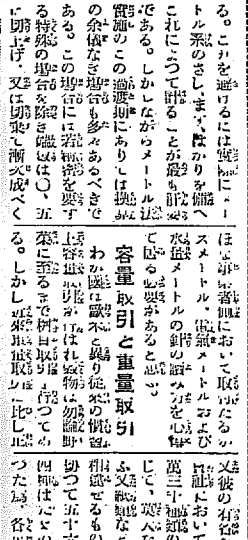 る。これを避けるには實際にメー
トル系のさし、ます、はかりを備へ
これによつて計ることが最も肝要
である。しかしながらメートル法
實施のこの過渡期にありては換算
の余儀なき場合も多々あるべきで
ある。この場合には若し精密を要す
る特殊の場合を除き端数は〇、五
に切上げ、又は切棄て漸次成べく
において取付たるガ
スメートル、電氣メートルおよび
水道メートルの針の讀み方を心得
て居る必要があると思ふ。
容量取引と重量取引
わが國は歐米と異り從來の慣習
上容量取引が行はれ穀物は勿論野
菜に至るまで桝取引を行つてゐ
る。しかし近來重量取引に比し正
又彼の石
社において
萬三十種類の
じて、莫大な
ふ又
相違せるもの
切つて五十六
四種
つた爲、各